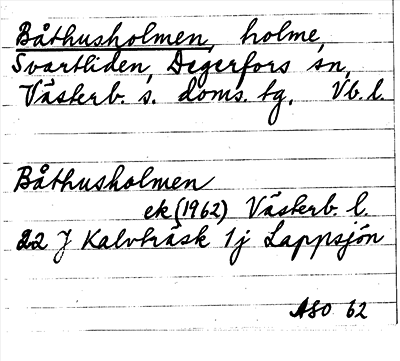 Båthusholmen, holme,
Svartliden, Degerfors sn,
Västerb. s. doms. tg, Vb. l.
Båthusholmen
ek (1962) Västerb. l.
22 J Kalvträsk 1j Lappsjön
ASO 62